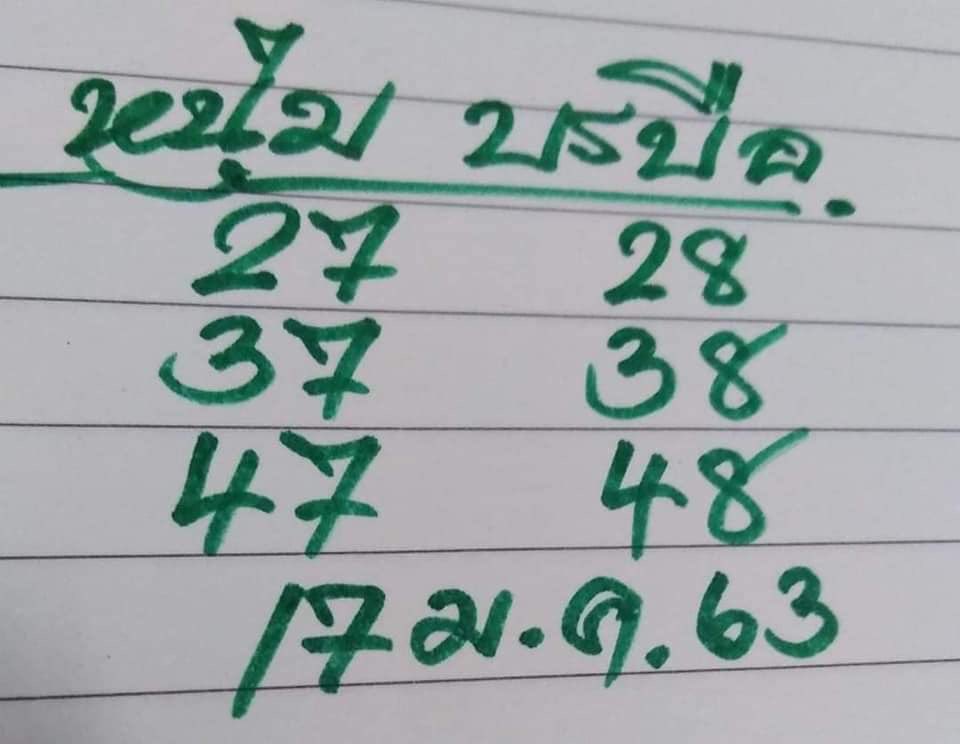 หนุ่ม บรบือ.
27 28
37 38
47 48
17 ม.ค. 63